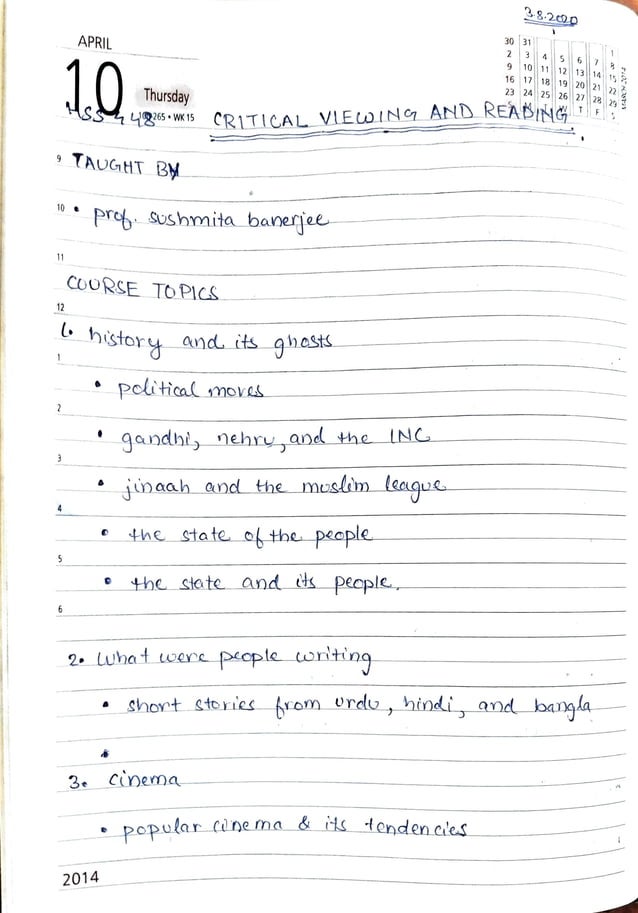 3.8.2020
APRIL
10
Thursday
30 31 1
2 3 4 5 6 7 8
9 10 11 12 13 14 15
16 17 18 19 20 21 22
23 24 25 26 27 28 29
T F S
MARCH 2014
265 • WK 15
CRITICAL VIEWING AND READING
9 TAUGHT BY
10 • prof. sushmita banerjee
11
COURSE TOPICS
12
1. history and its ghosts
1
• political moves
2
• gandhi, nehru, and the INC
3
• jinaah and the muslim league
4
• the state of the people
5
• the state and its people.
6
2. What were people writing
• short stories from urdu, hindi, and bangla
•
3. cinema
• popular cinema & its tendencies
2014